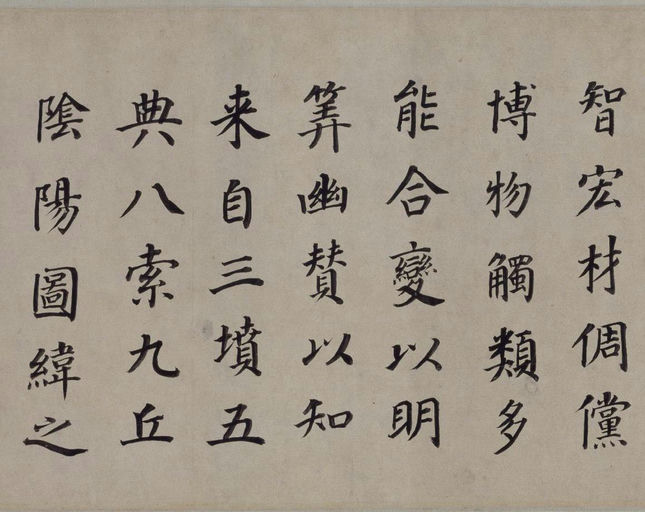 智宏材倜儻
博物觸類多
能合變以明
筭幽賛以知
来自三墳五
典八索九丘
陰陽圖緯之